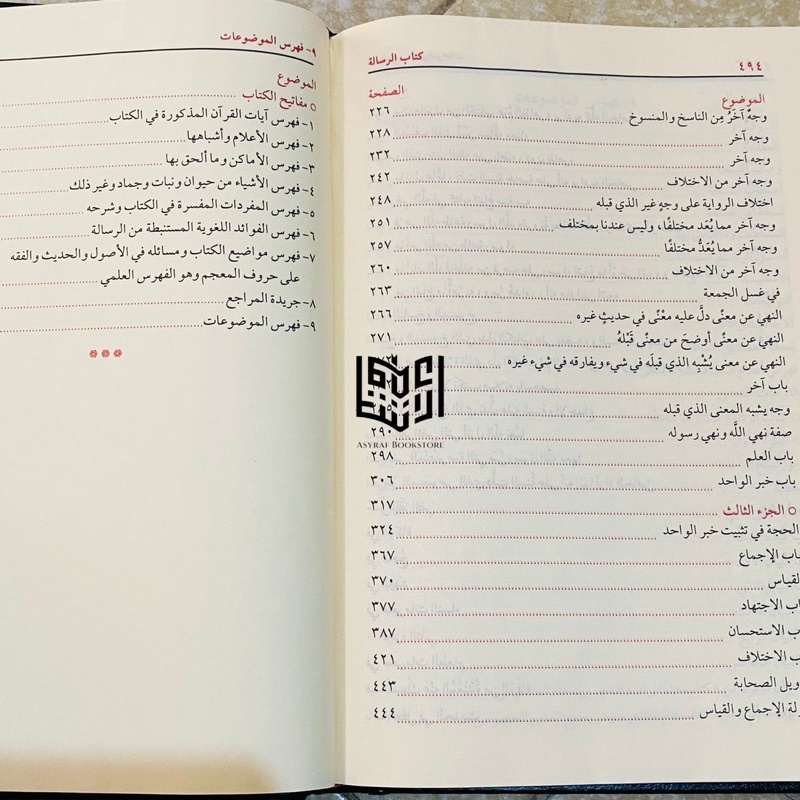 ٤٩٤
كتاب الرسالة
الموضوع الصفحة
وجهٌ آخَرُ مِن الناسخ والمنسوخ ٢٢٦
وجه آخر ٢٢٨
وجه آخر ٢٣٢
وجه آخر من الاختلاف ٢٤٢
اختلاف الرواية على وجهٍ غير الذي قبله ٢٤٨
وجه آخر مما يُعَد مختلفًا، وليس عندنا بمختلف ٢٥١
وجه آخر مما يُعَدُّ مختلفًا ٢٥٧
وجه آخر من الاختلاف ٢٦٠
في غسل الجمعة ٢٦٣
النهي عن معنًى دلَّ عليه معْنًى في حديثٍ غيره ٢٦٦
النهي عن معنًى أوضحَ من معنًى قَبْلَهُ ٢٧١
النهي عن معنى يُشْبِه الذي قبلَه في شيء ويفارقه في شيء غيره
باب آخر
وجه يشبه المعنى الذي قبله
صفة نهي اللَّه ونهي رسوله ٢٩٠
باب العلم ٢٩٨
باب خبر الواحد ٣٠٦
○ الجزء الثالث ٣١٧
الحجة في تثبيت خبر الواحد ٣٢٤
باب الإجماع ٣٦٧
القياس ٣٧٠
اب الاجتهاد ٣٧٧
ب الاستحسان ٣٨٧
ب الاختلاف ٤٢١
ويل الصحابة ٤٤٣
لة الإجماع والقياس ٤٤٤
ASYRAF BOOKSTORE
٩- فهرس الموضوعات
الموضوع
○ مفاتيح الكتاب
١- فهرس آيات القرآن المذكورة في الكتاب
٢- فهرس الأعلام وأشباهها
٣- فهرس الأماكن وما ألحق بها
٤- فهرس الأشياء من حيوان ونبات وجماد وغير ذلك
٥- فهرس المفردات المفسرة في الكتاب وشرحه
٦- فهرس الفوائد اللغوية المستنبطة من الرسالة
٧- فهرس مواضيع الكتاب ومسائله في الأصول والحديث والفقه
على حروف المعجم وهو الفهرس العلمي
٨- جريدة المراجع
٩- فهرس الموضوعات